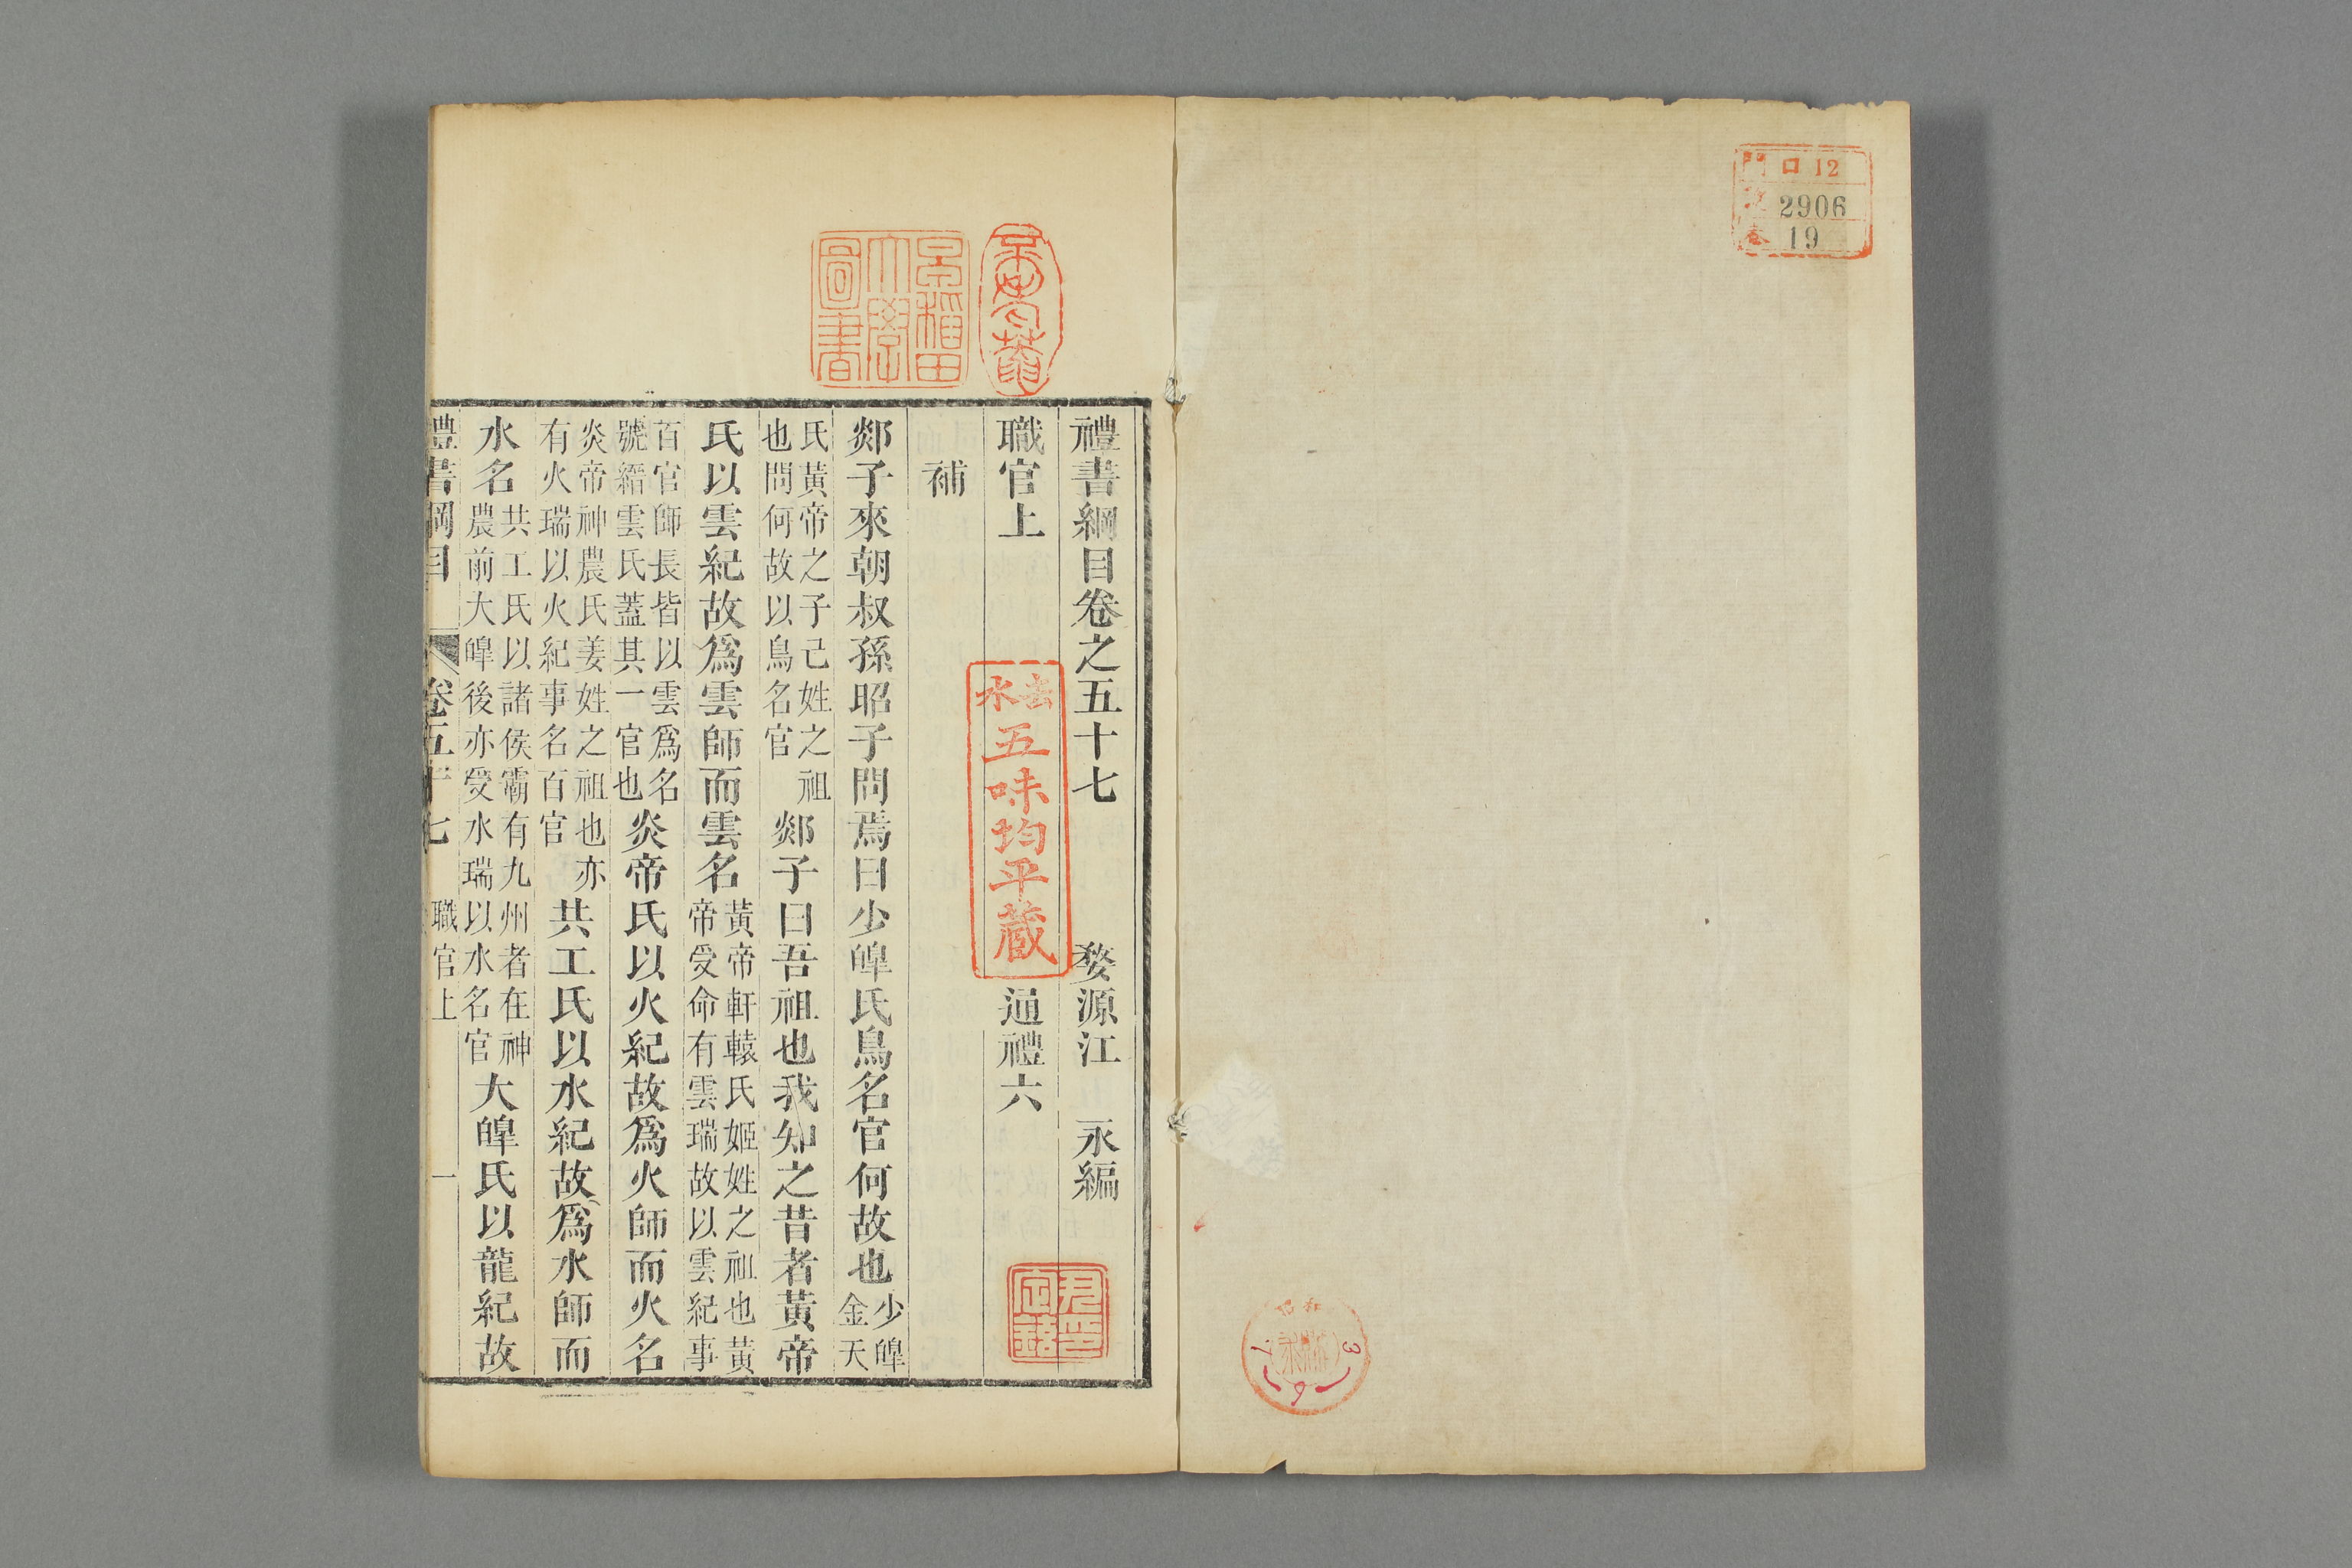 門 口 12
號 2906
卷 19
禮書綱目卷之五十七
婺源江 永編
職官上
通禮六
補
郯子來朝叔孫昭子問焉曰少皥氏鳥名官何故也少皥金天
氏黃帝之子己姓之祖也問何故以鳥名官郯子曰吾祖也我知之昔者黃帝
氏以雲紀故爲雲師而雲名黃帝軒轅氏姬姓之祖也黃帝受命有雲瑞故以雲紀事
百官師長皆以雲爲名號縉雲氏蓋其一官也炎帝氏以火紀故爲火師而火名
炎帝神農氏姜姓之祖也亦有火瑞以火紀事名百官共工氏以水紀故爲水師而
水名共工氏以諸侯霸有九州者在神農前大皥後亦受水瑞以水名官大皥氏以龍紀故
禮書綱目
卷五十七
職官上
一
早稻田大學圖書
五味均平蔵
昭和
3
7
6